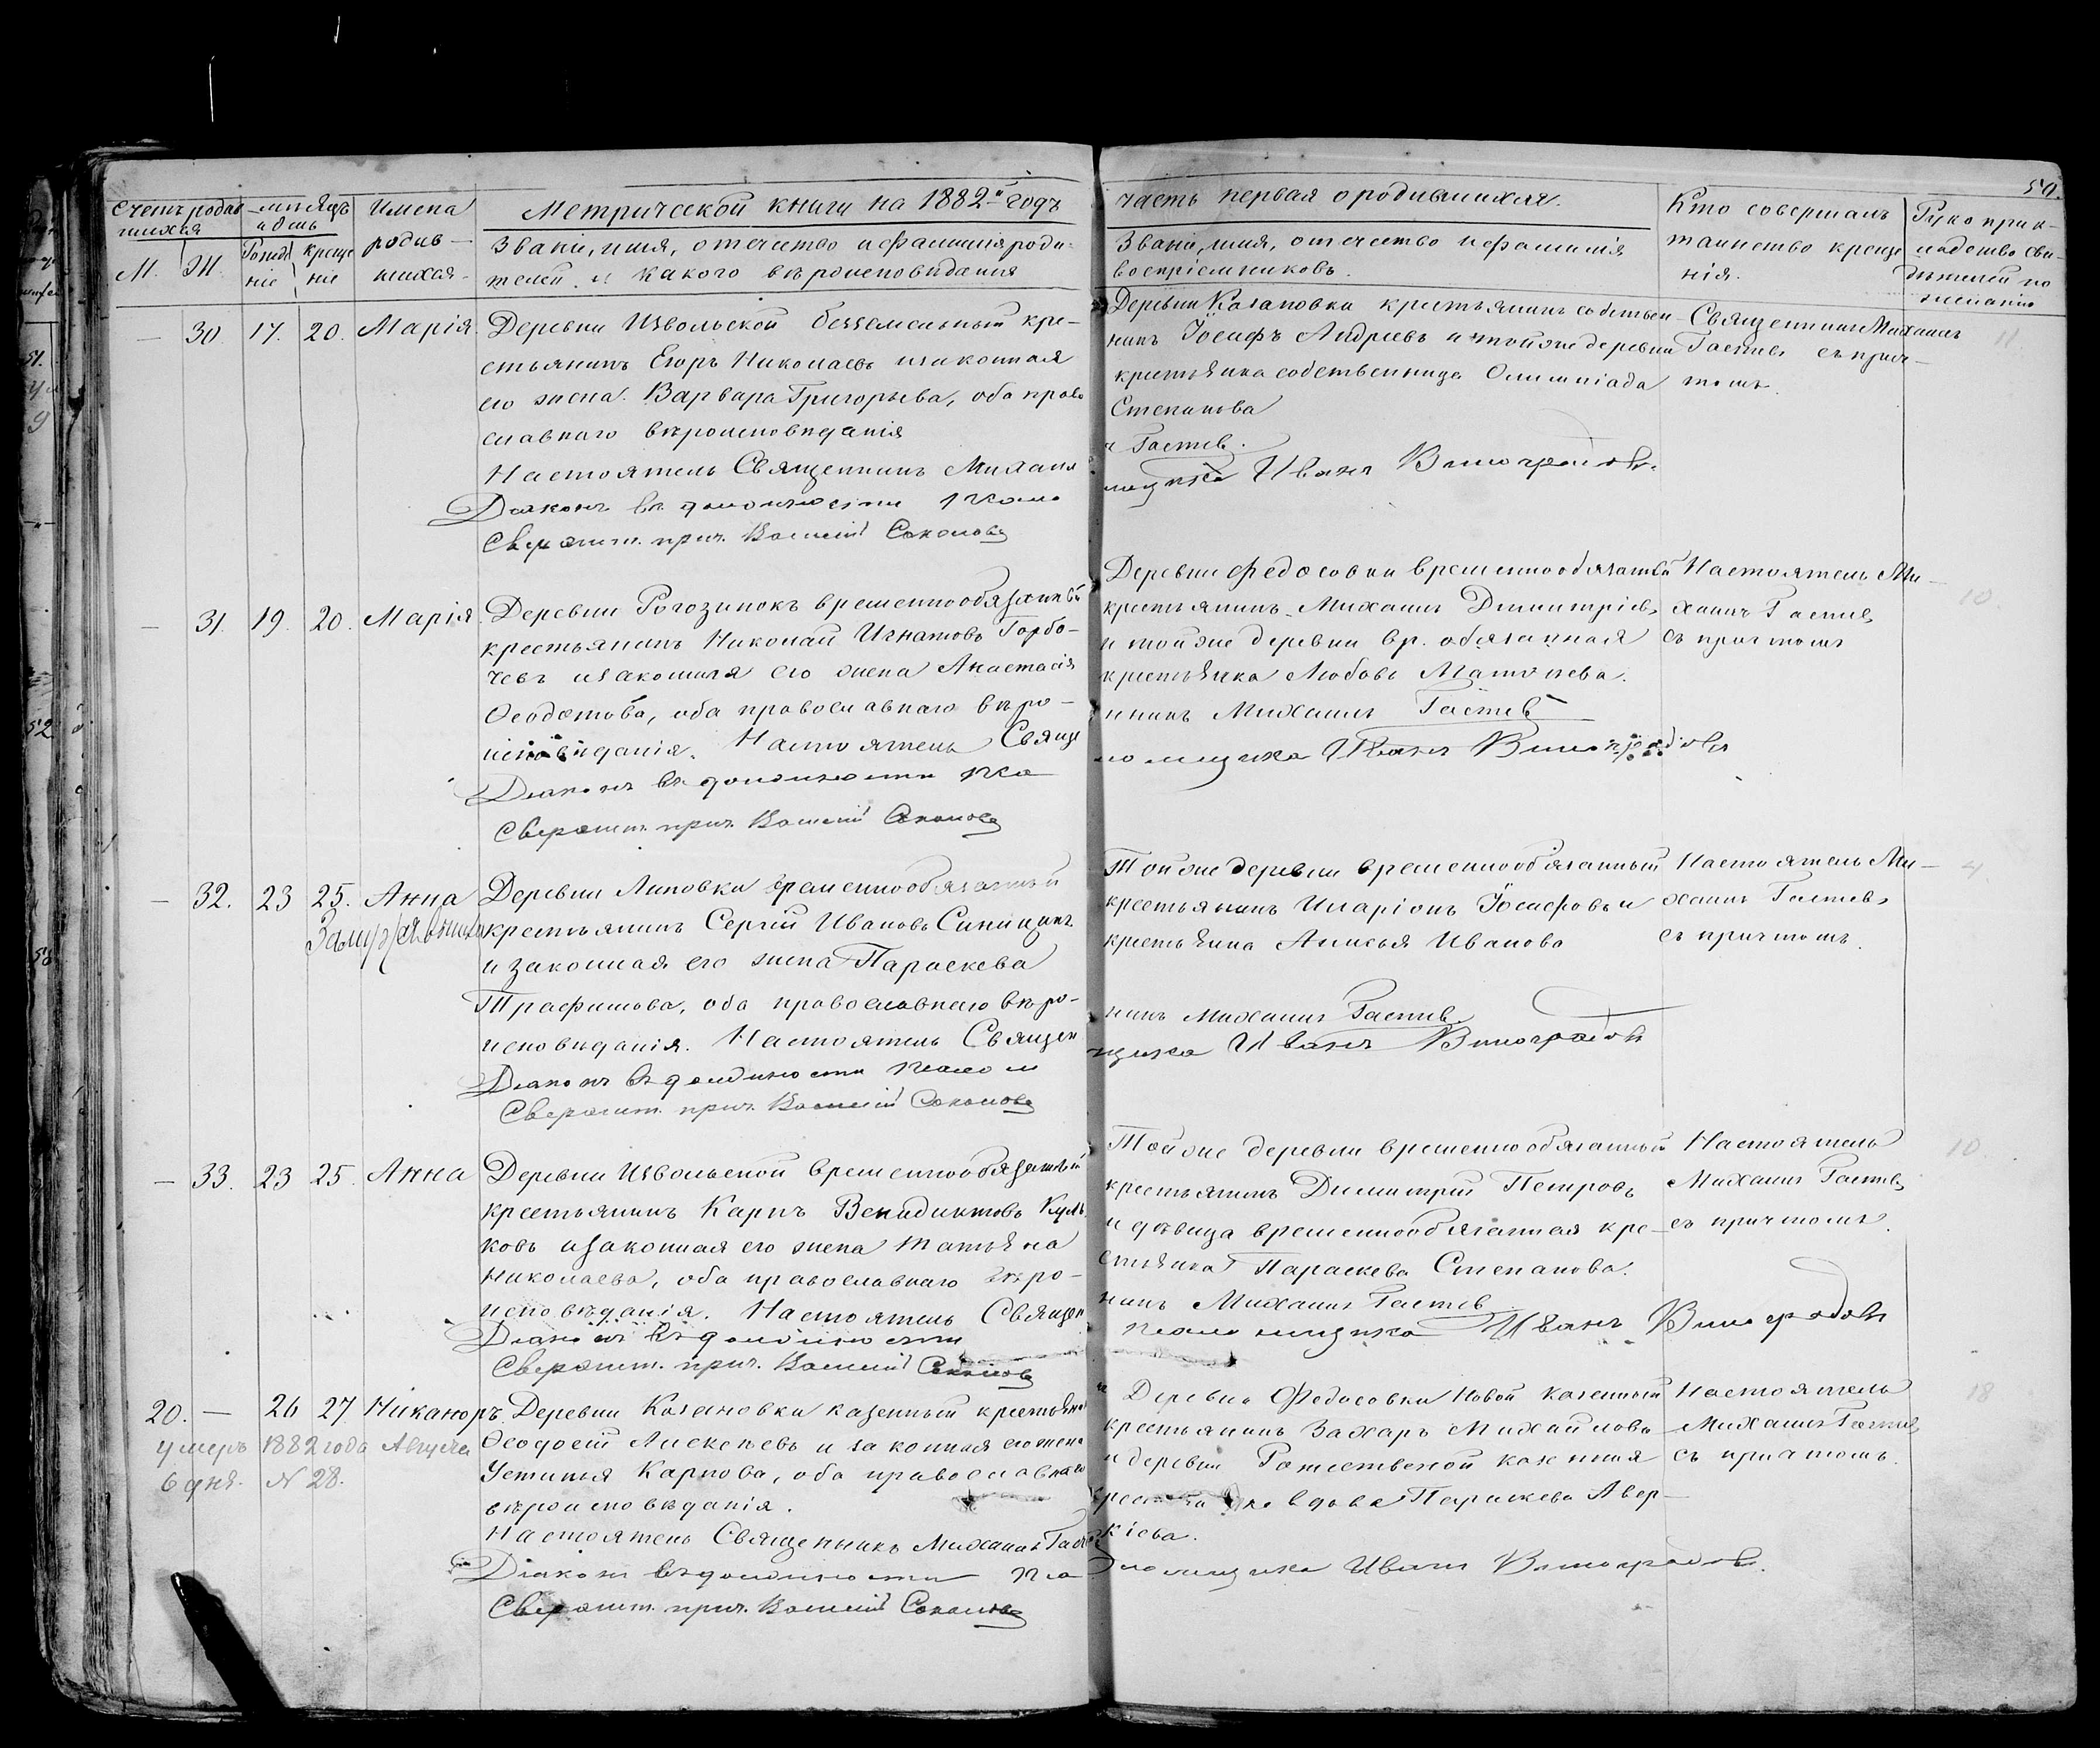 50.
Метрической книги на 1882й годъ
часть первая о родившихся.
Счетъ родив
шихся
мѣсяцъ
и день
М. Ж.
Рожде
ніе
креще
ніе
Имена
родив-
шихся
Званіе, имя, отечество и фамилія роди-
телей и какого вѣроисповѣданія
Званіе, имя, отечество и фамилія
воспріемниковъ.
Кто совершалъ
таинство креще
нія.
Рукоприк-
ладство сви-
дѣтелей по
желанію
— 30. 17. 20. Марія.
Деревни Извольской безземельный кре-
стьянинъ Егоръ Николаевъ и законная
его жена Варвара Григорьева, оба право
славнаго вѣроисповѣданія
Настоятель Священникъ Михаил
Діаконъ въ должности псало
Сверялъ. прич. Василій Соколовъ
Деревни Казановки крестьянинъ собствен-
никъ Іосифъ Андреевъ и тойже деревни
крестьянка собственница Олимпіада
Степанова
ъ Гастев.
мщика Иванъ Виноградовъ.
Священникъ Михаилъ
Гастевъ съ прич-
томъ.
11
— 31. 19. 20. Марія.
Деревни Рогозинокъ временнообязанный
крестьянинъ Николай Игнатовъ Горбо-
чевъ и законная его жена Анастасія
Ѳеодотова, оба православнаго вѣро-
исповѣданія. Настоятель Свяще
Діаконъ въ должности пса
Сверялъ. прич. Василій Соколовъ
Деревни Федосовки временнообязанный
крестьянинъ Михаилъ Димитріевъ
и тойже деревни вр. обязанная
крестьянка Любовь Матвѣева.
нникъ Михаилъ Гастев
ломщика Иванъ Виноградовъ
Настоятель Ми-
хаилъ Гастевъ
съ причтомъ
10
— 32. 23 25. Анна
Деревни Липовки временнообязанный
крестьянинъ Сергій Ивановъ Синицинъ
и законная его жена Параскева
Трафимова, оба православнаго вѣро-
исповѣданія. Настоятель Священ
Діаконъ въ должности псалом
Сверялъ. прич. Василій Соколовъ
Тойже деревни временнообязанный
крестьянинъ Иларіонъ Іосифовъ и
крестьянка Анисья Иванова
никъ Михаилъ Гастев
щика Иванъ Виноградовъ
Настоятель Ми-
хаилъ Гастевъ
съ причтомъ.
4
— 33. 23 25. Анна
Деревни Извольской временнообязанный
крестьянинъ Карпъ Венидиктовъ Куль
ковъ и законная его жена Татьяна
Николаева, оба православнаго вѣро-
исповѣданія. Настоятель Священ
Діаконъ въ должности
Сверялъ. прич. Василій Соколовъ
Тойже деревни временнообязанный
крестьянинъ Димитрій Петровъ
и дѣвица временнообязанная кре-
стьянка Параскева Степанова.
никъ Михаилъ Гастев
псаломщика Иванъ Виноградовъ
Настоятель
Михаилъ Гастевъ
съ причтомъ.
10
20. — 26 27 Никаноръ.
умеръ 1882 года Августа
6 дня. N 28.
Деревни Казановки казенный крестьян
Ѳеодосій Алексѣевъ и законная его жена
Устинья Карпова, оба православнаго
вѣроисповѣданія.
Настоятель Священникъ Михаилъ Гаст
Діаконъ въ должности пса
Сверялъ. прич. Василій Соколовъ
Деревни Федосовки Новой казенный
крестьянинъ Захаръ Михайловъ
и деревни Рожественой казенная
вдова Параскева Авер-
кіева.
ломщика Иванъ Виноградовъ.
Настоятель
Михаилъ Гастевъ
съ причтомъ.
18